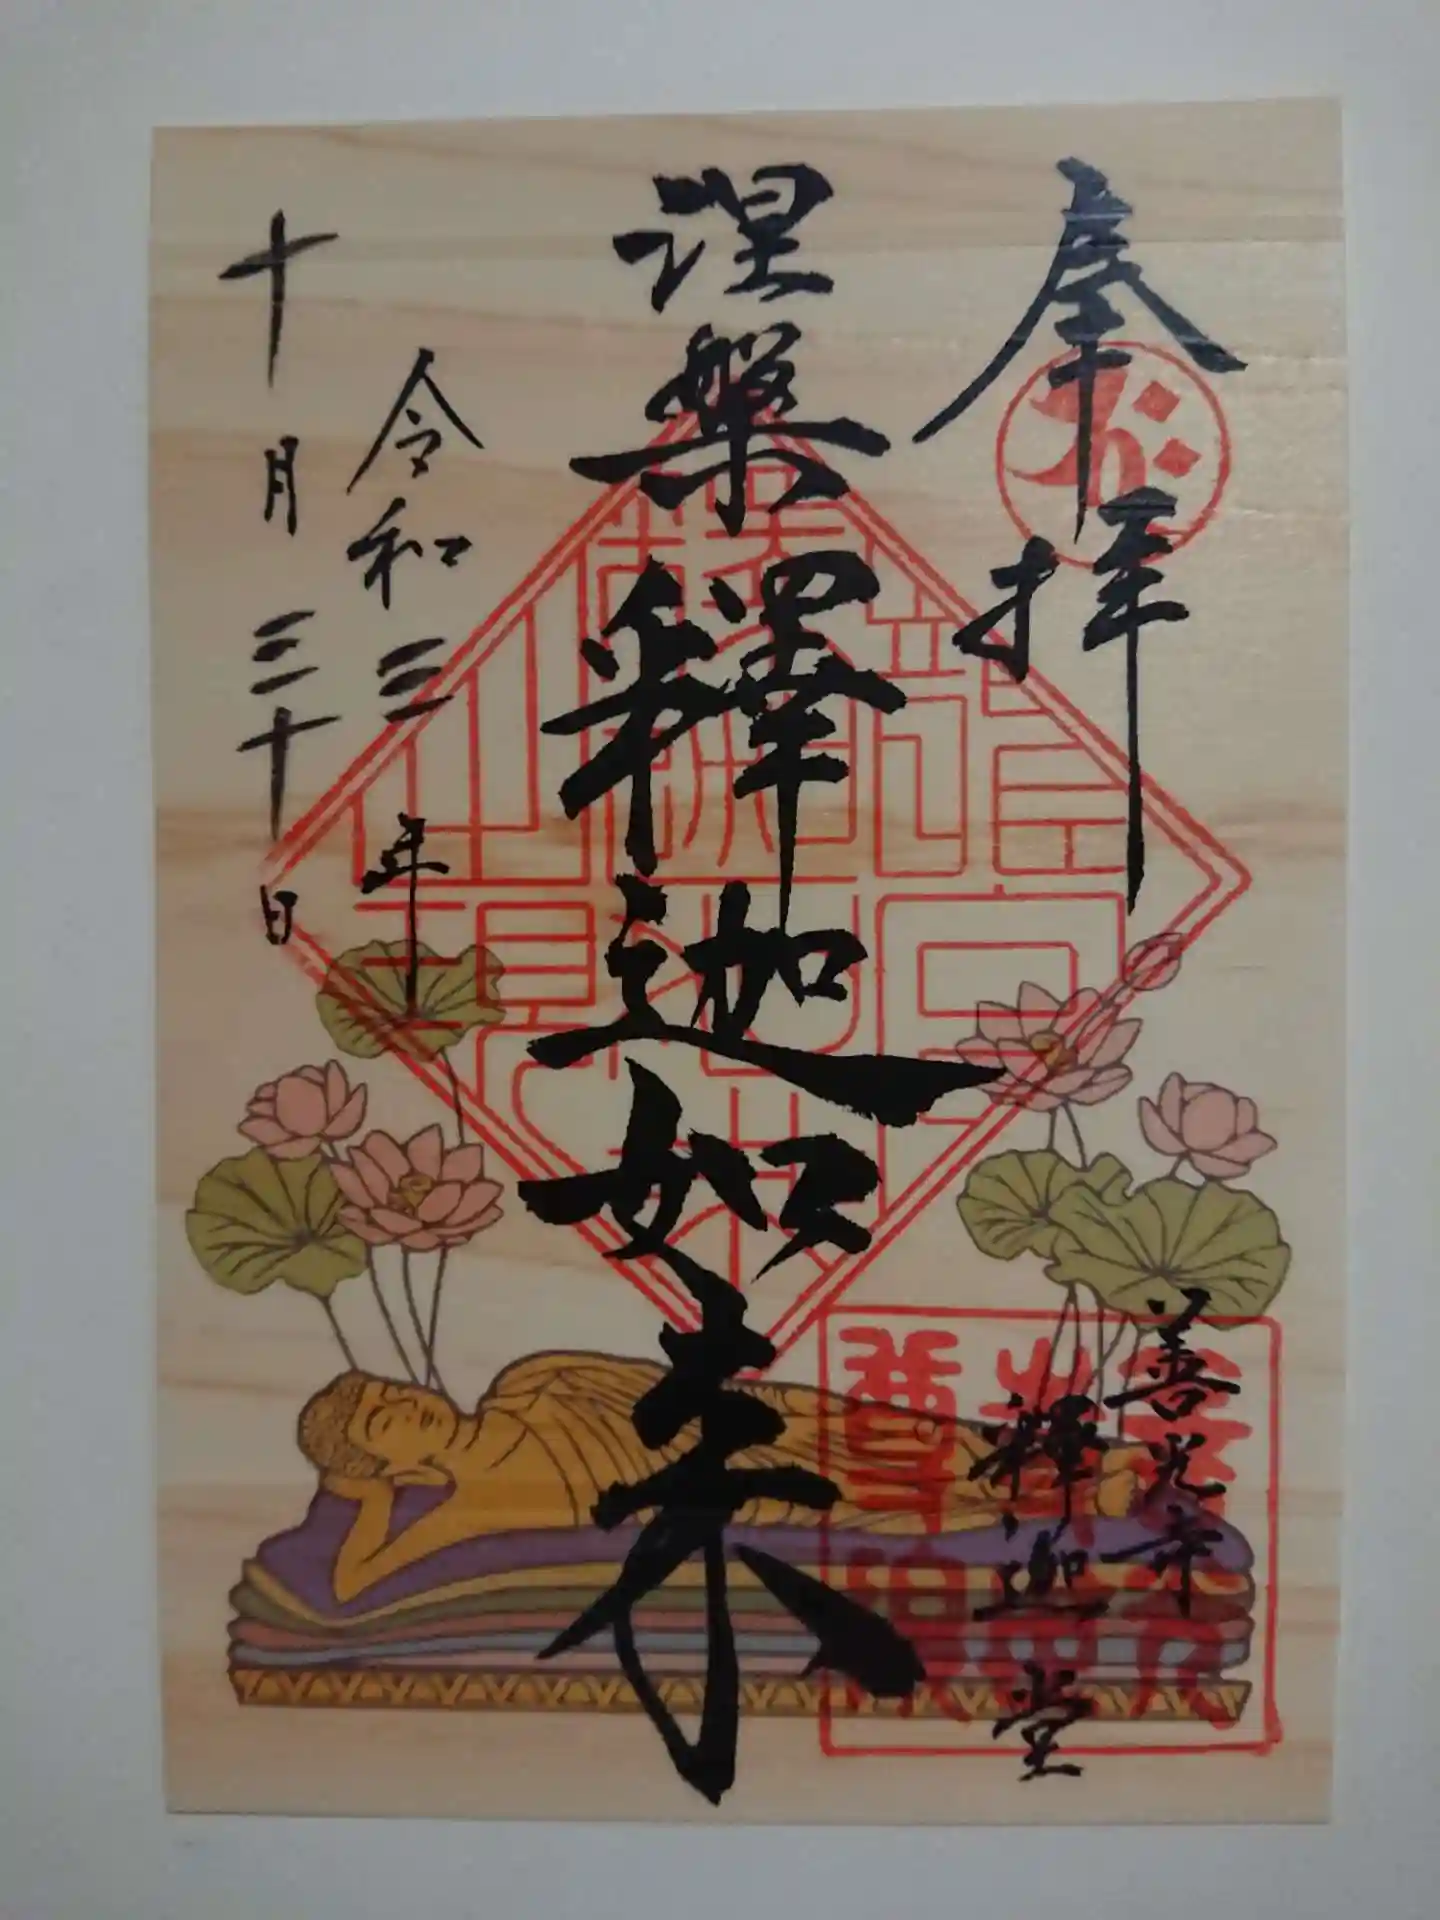 奉拝
善光寺
釋迦堂
涅槃釋迦如来
令和三年
十月三十日